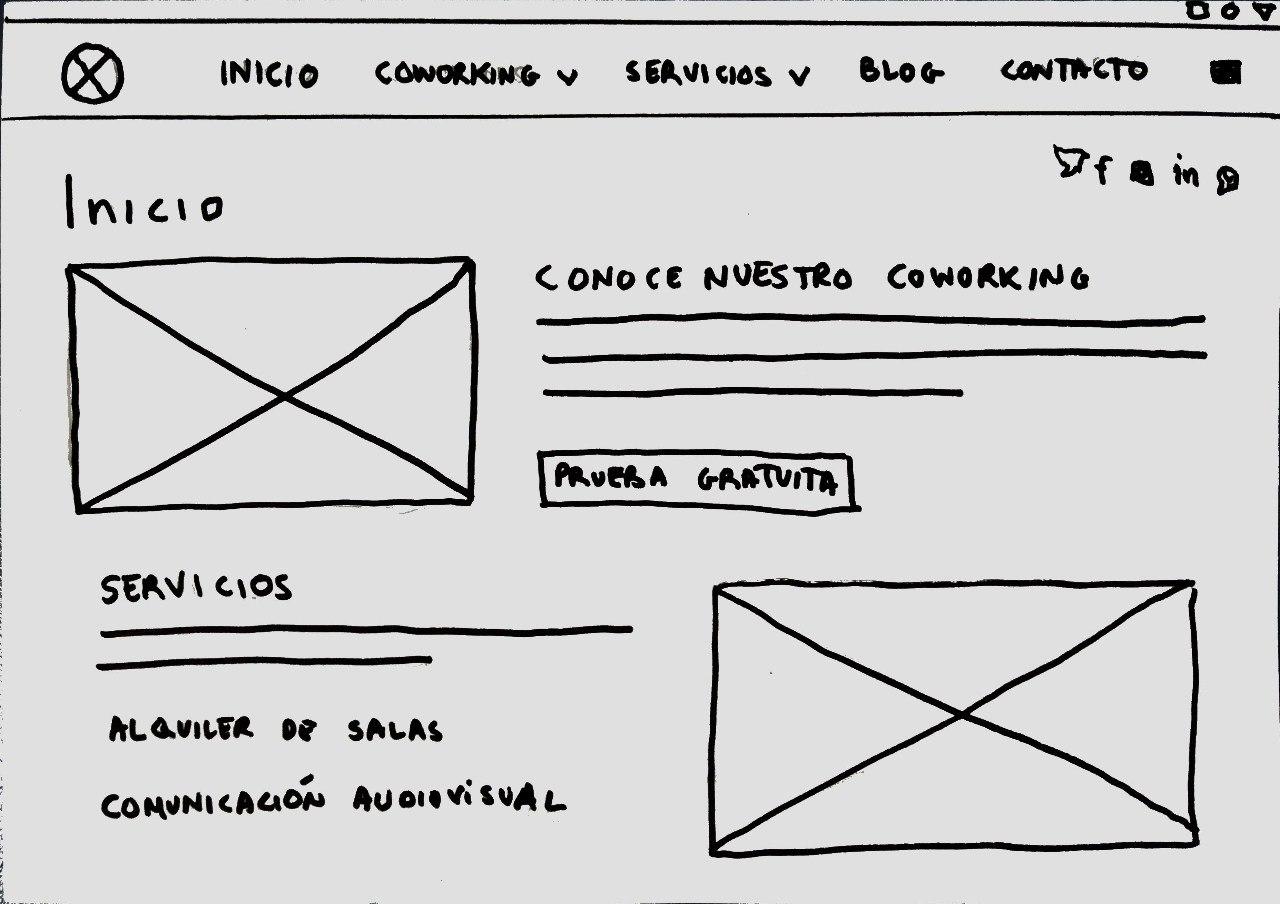 INICIO COWORKING SERVICIOS BLOG CONTACTO
f in
Inicio
CONOCE NUESTRO COWORKING
PRUEBA GRATUITA
SERVICIOS
ALQUILER DE SALAS
COMUNICACIÓN AUDIOVISUAL